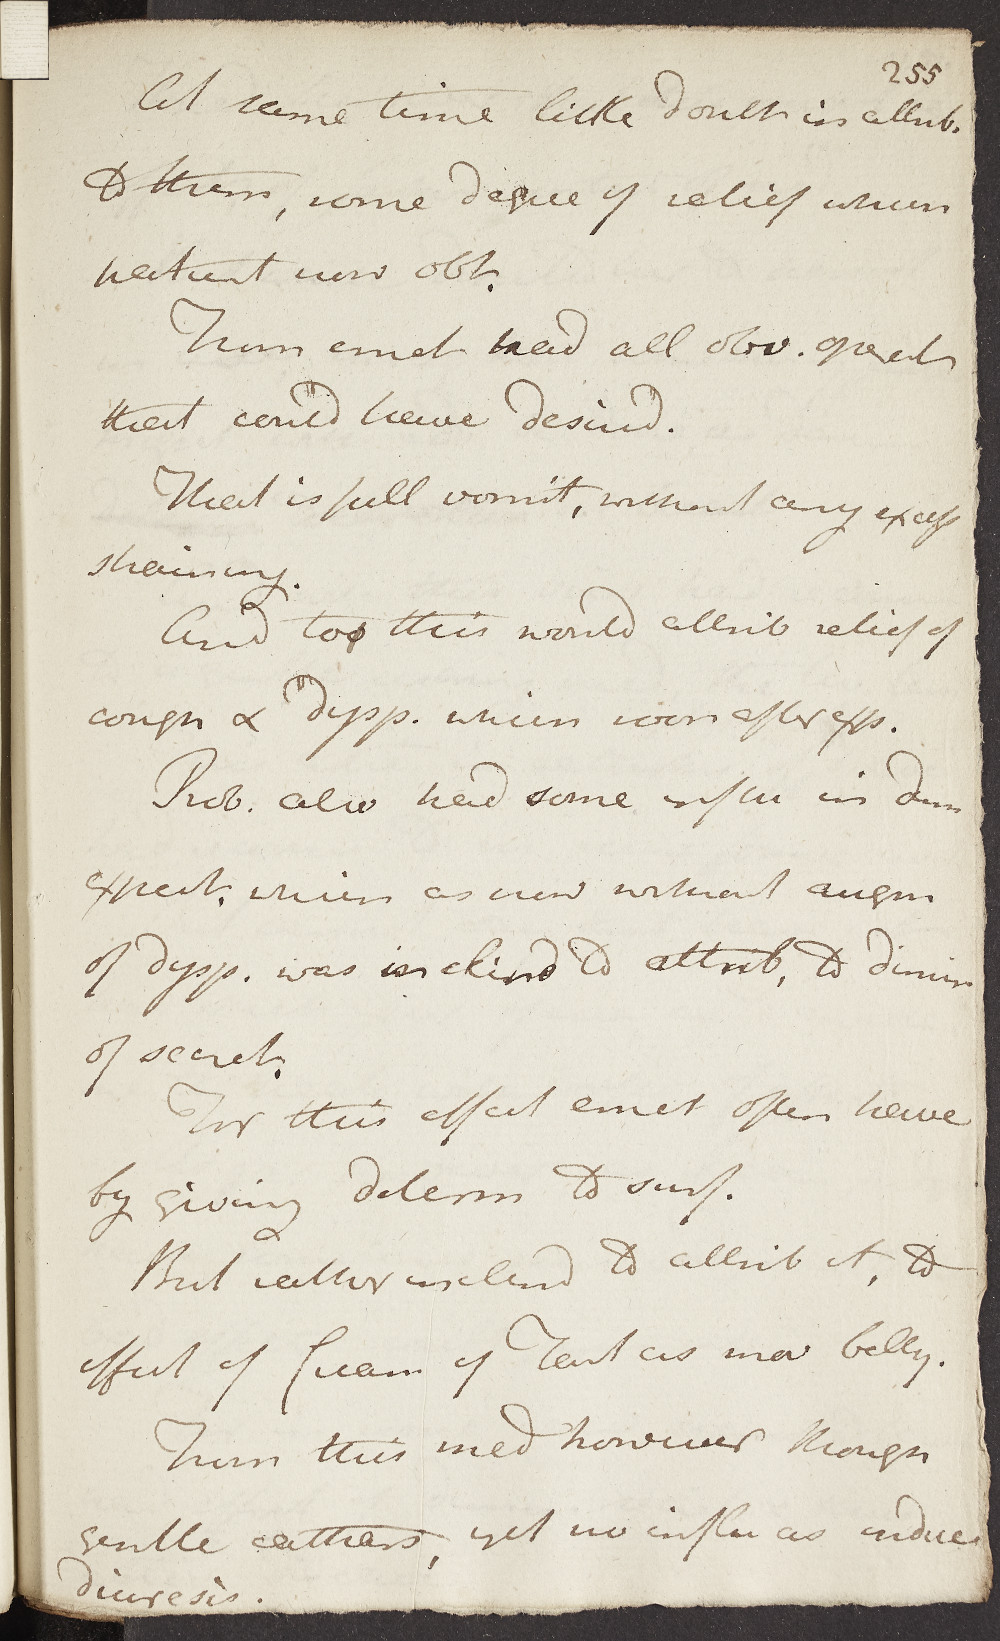 255
At same time little doubt in attrib.
to them, some degree of relief when
patient now obt.
From emet had all obv. operat
that could have desired.
That is full vomit, without any excess
straining.
And to this would attrib relief of
cough & dysp. which soon after exp.
Prob. also had some influ in dim
expect. which as now without augm
of dysp. was inclined to attrib, to dimin
of secret.
For this effect emet often have
by giving determ to surf.
But rather inclind to attrib it, to
effect of Cream of Tart as mov belly.
From this med however though
gentle cathars, yet no influ as induce
diuresis.